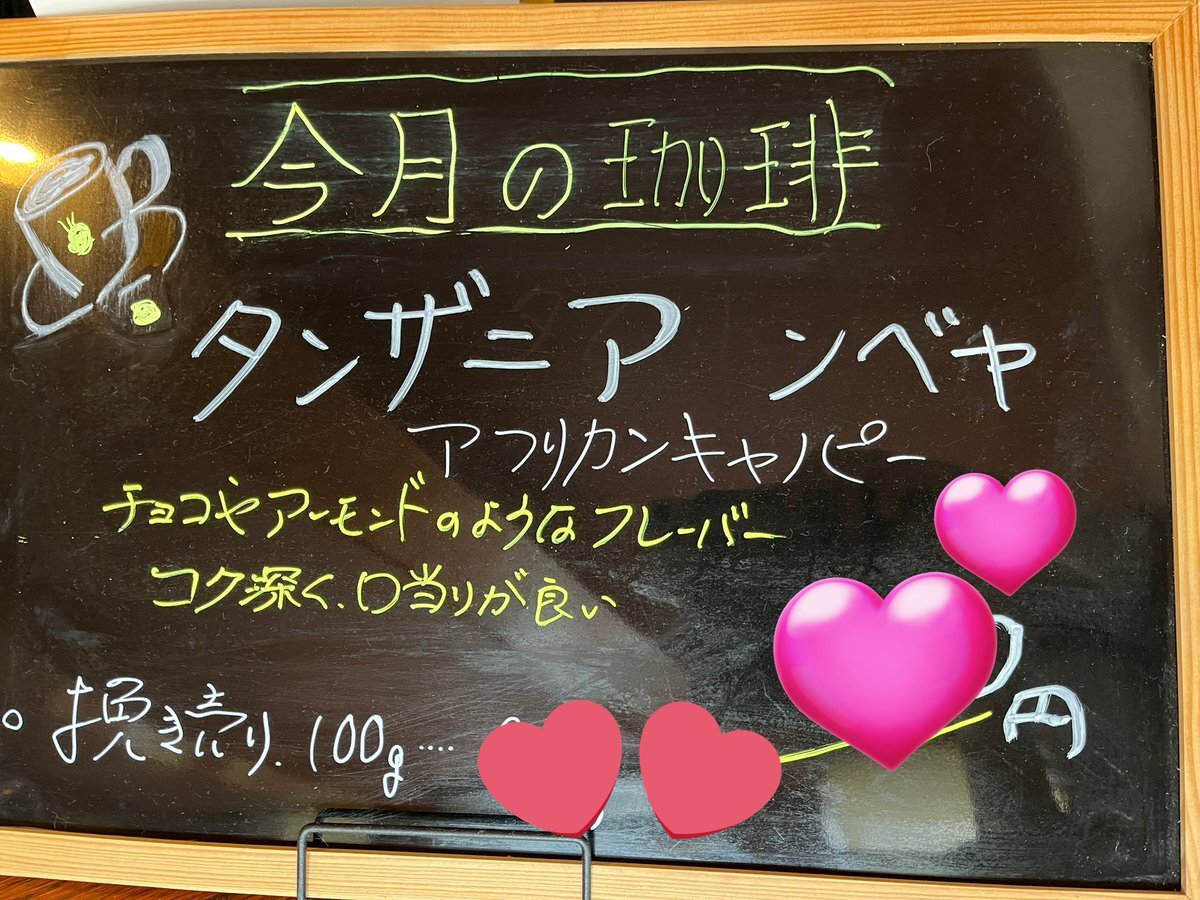 今月の珈琲
タンザニア ンベヤ
アフリカンキャノピー
チョコやアーモンドのようなフレーバー
コク深く、口当りが良い
円
。挽き売り. 100g ····